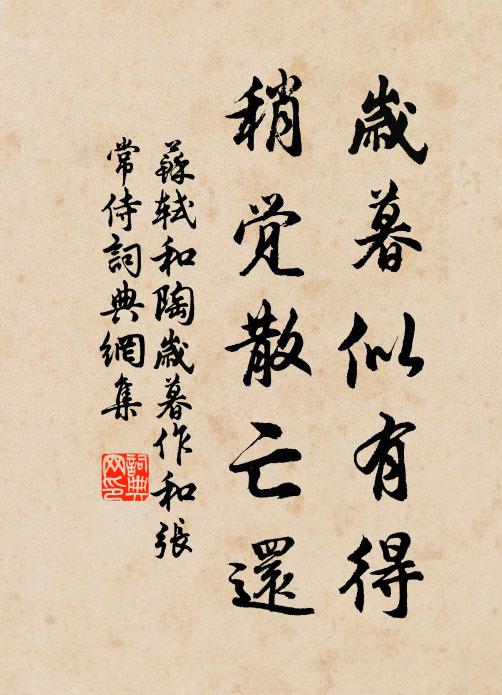 歲暮似有得
稍覺散亡還
蘇軾和陶歲暮作和張
常侍詞典網集
詞典
网印